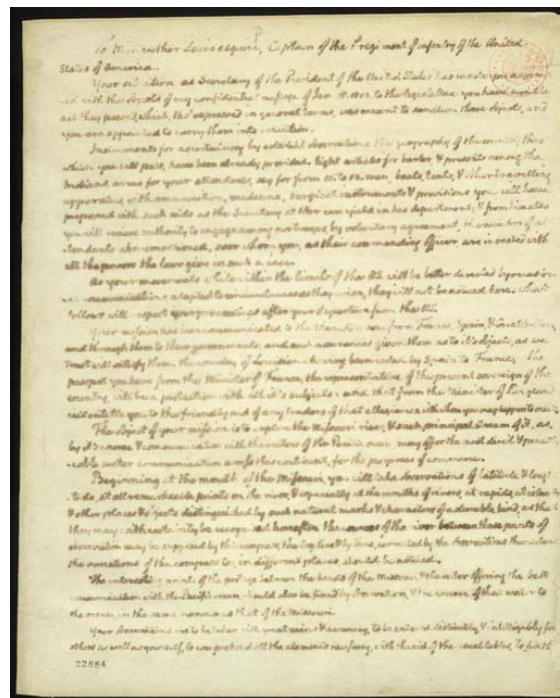 To Meriwether Lewis esquire, Captain of the 1st regiment of infantry of the United
States of America.
Your situation as Secretary of the President of the United States has made you acquaint-
-ed with the objects of my confidential message of Jan. 18. 1803 to the legislature. you have seen the
act they passed, which, tho' expressed in general terms, was meant to sanction those objects, and
you are appointed to carry them into execution.
Instruments for ascertaining by celestial observations the geography of the country thro'
which you will pass, have been already provided. light articles for barter, & presents among the
Indians, arms for your attendants, say for from 10 to 12. men, boats, tents, & other travelling
apparatus, with ammunition, medicine, surgical instruments & provisions you will have
prepared with such aids as the Secretary at War can yield in his department; & from him also
you will receive authority to engage among our troops, by voluntary agreement, the number of at-
-tendants abovementioned, over whom you, as their commanding officer are invested with
all the powers the laws give in such a case.
As your movements while within the limits of the US. will be better directed by occasion-
-al communications, adapted to circumstances as they arise, they will not be noticed here. what
follows will respect your proceedings after your departure from the US.
Your mission has been communicated to the Ministers here from France, Spain & Great Britain,
and through them to their governments: and such assurances given them as to it's objects, as we
trust will satisfy them. the country of Louisiana having been ceded by Spain to France, the
passport you have from the Minister of France, the representative of the present sovereign of the
country, will be a protection with all it's subjects: and that from the Minister of England
will entitle you to the friendly aid of any traders of that allegiance with whom you may happen to meet.
The object of your mission is to explore the Missouri river, & such principal stream of it, as,
by it's course & communication with the waters of the Pacific ocean, may offer the most direct & practi-
-cable water communication across this continent, for the purposes of commerce.
Beginning at the mouth of the Missouri, you will take observations of latitude & longi-
-tude, at all remarkeable points on the river, & especially at the mouths of rivers, at rapids, at islands
& other places & objects distinguished by such natural marks & characters of a durable kind, as that
they may with certainty be recognised hereafter. the courses of the river between these points of
observation may be supplied by the compass, the log-line & by time, corrected by the observations themselves.
the variations of the compass too, in different places, should be noticed.
The interesting points of the portage between the heads of the Missouri & the water offering the best
communication with the Pacific ocean should also be fixed by observation, & the course of that water to
the ocean, in the same manner as that of the Missouri.
Your observations are to be taken with great pains & accuracy, to be entered distinctly, & intelligibly for
others as well as yourself, to comprehend all the elements necessary, with the aid of the usual tables, to fix th
22884